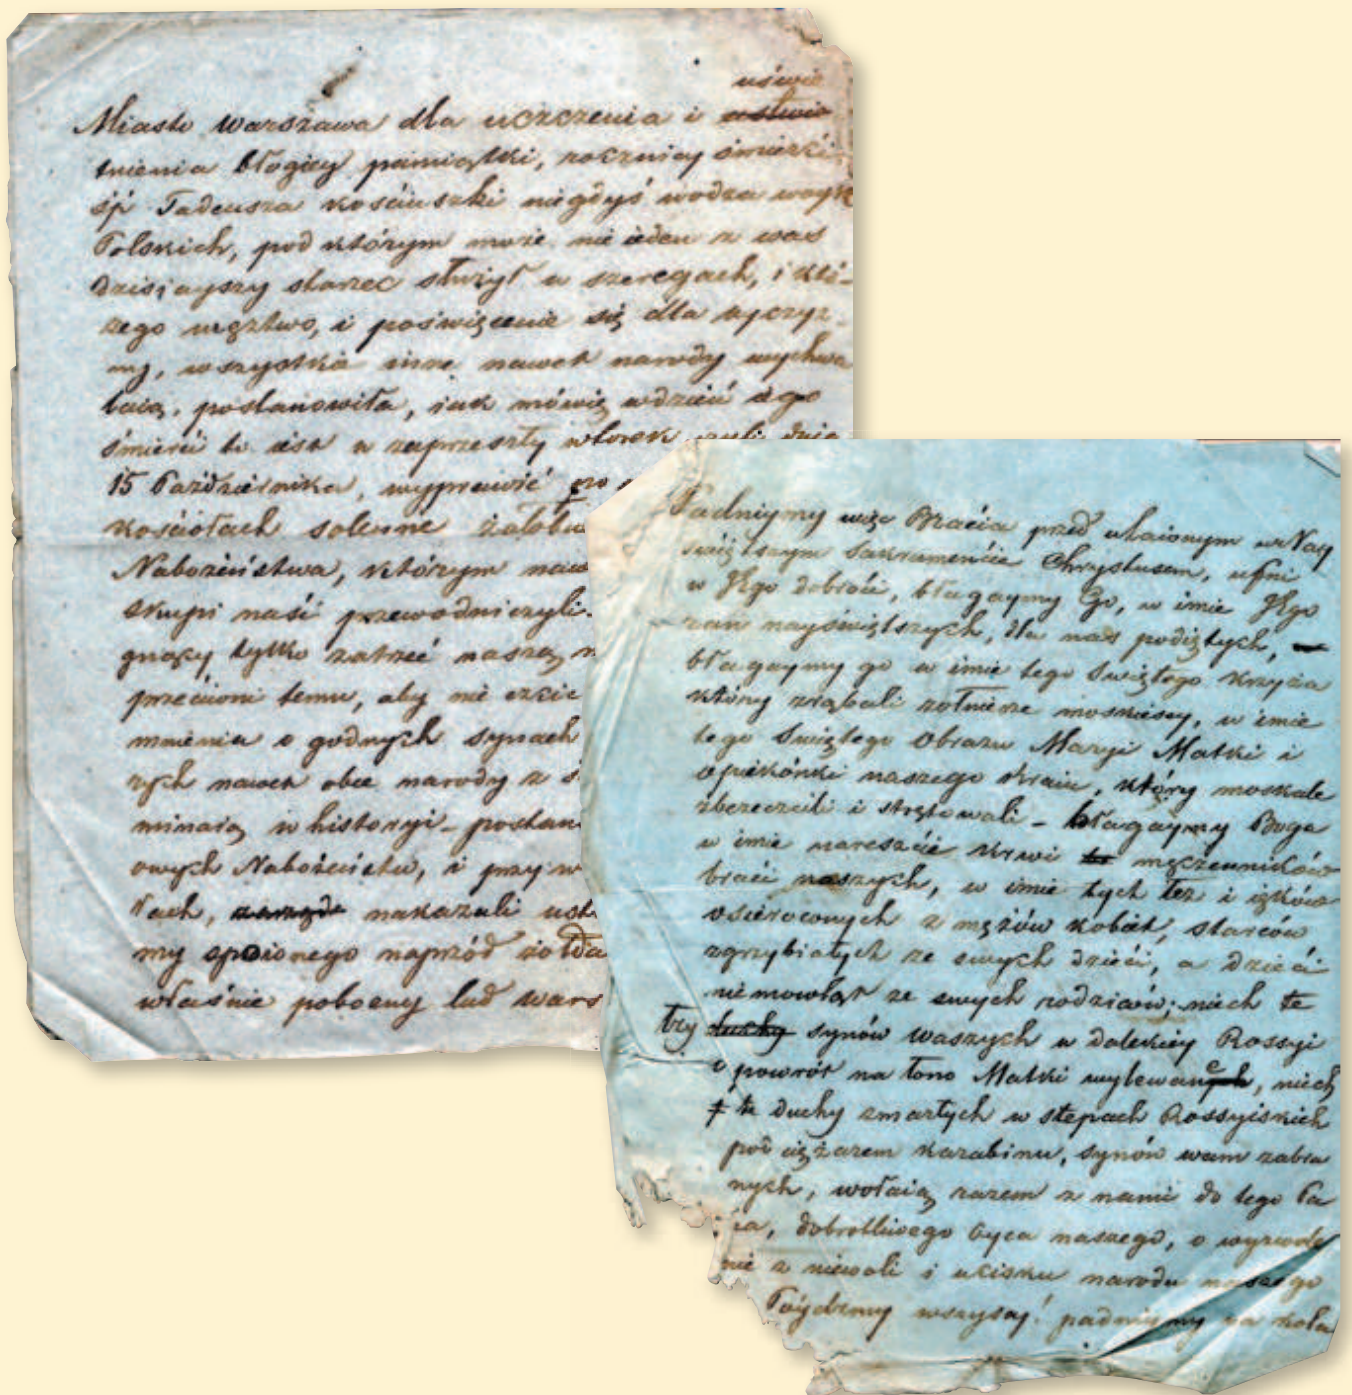 uświe
Miasto Warszawa dla uczczenia i
tnienia błogiey pamiątki, rocznicy śmierci
śp Tadeusza Kościuszki niegdyś wodza woysk
Polskich, pod którym może nie ieden z was
dzisiayszy starzec służył w szeregach, i któ-
rego męztwo, i poświęcenie się dla oyczyz-
ny, wszystkie inne nawet narody wychwa
laią, postanowiła, iak mówię w dzień iego
śmierci to iest w zaprzeszły wtorek czyli dnia
15 Października, wyprawić po
kościołach solenne żałobne
Nabożeństwa, którym naw
skupi naśi przewodniczyli.
gnący tylko zatrzeć naszą n
przeciwni temu, aby nie czcić
mnienia o godnych synach
rych nawet obce narody z
minaią w historyi – postan
owych Nabożeństw, i przy w
łach, nakazali ust
my spoionego naprzód żołda
właśnie pobożny lud Wars
Padniymy więc Bracia przed utaionym w Nay
świętszym Sakramencie Chrystusem, ufni
w Jego dobroci, błagaymy Go, w imie Jego
ran nayświętszych, dla nas podiętych,
błagaymy go w imie tego Świętego Krzyża
który zrąbali żołnierze moskiescy, w imie
tego Świętego Obrazu Maryi Matki i
opiekónki naszego Kraiu, który moskale
zbezcześcili i – błagaymy Boga
w imie nareszcie Krwi męczenników
braci naszych, w imie tych łez i ięków
osieroconych z mężów kobiet, starców
zgrzybiałych ze swych dzieci, a dzieci
niemowląt ze swych rodziców; niech te
łzy duchy synów waszych w dalekiey Rossyi
o powrót na łono Matki wylewane, niech
te duchy zmarłych w stepach Rossyiskich
pod ciężarem karabinu, synów wam zabra
nych, wołaią razem z nami do tego Pa
na, dobrotliwego Oyca naszego, o wyzwole
nie z niewoli i ucisku narodu naszego
Póydzmy wszyscy! padniymy na kola